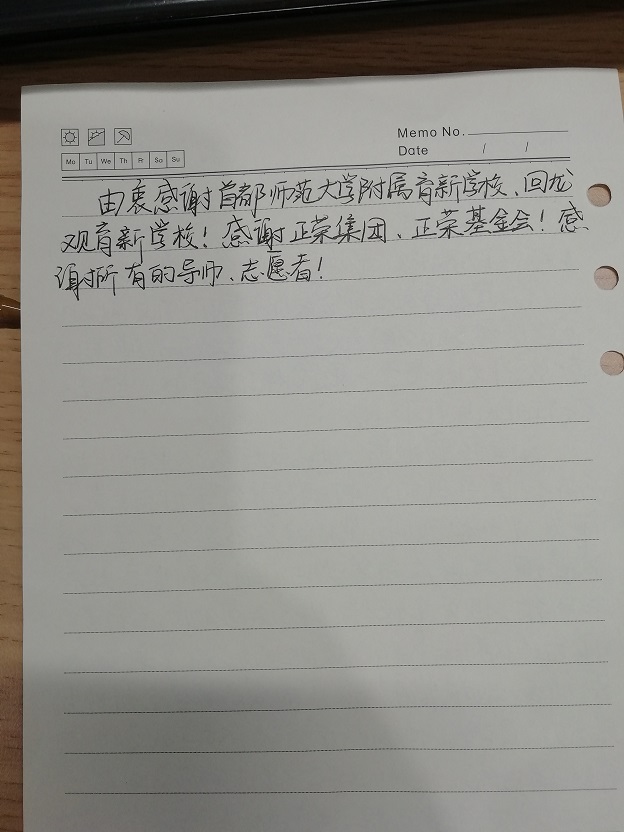 Memo No.
Date / /
Mo Tu We Th Fr Sa Su
由衷感谢首都师范大学附属育新学校、回龙
观育新学校！感谢正荣集团、正荣基金会！感
谢所有的导师、志愿者！